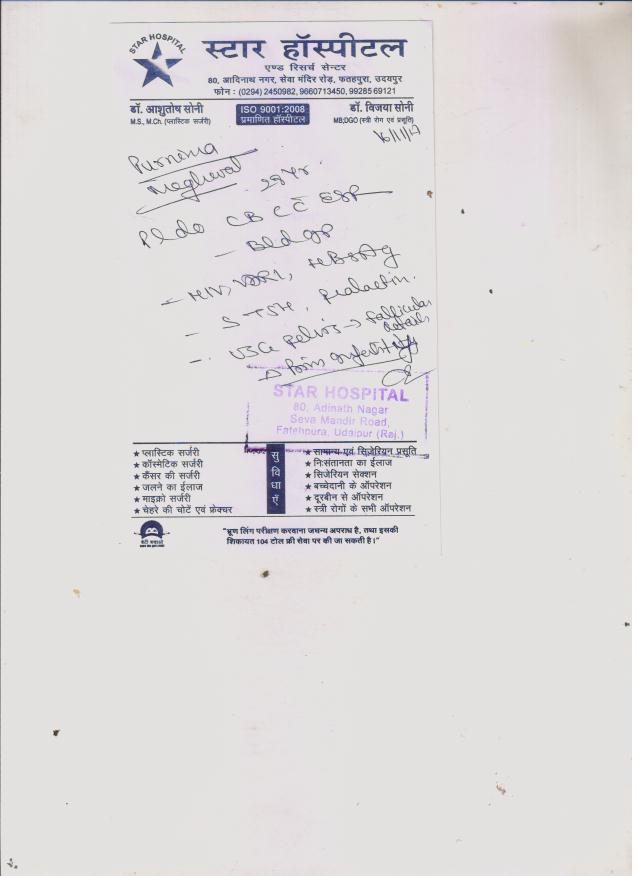 STAR HOSPITAL
स्टार हॉस्पीटल
एण्ड रिसर्च सेन्टर
80, आदिनाथ नगर, सेवा मंदिर रोड़, फतहपुरा, उदयपुर
फोन : (0294) 2450982, 9660713450, 9928569121
डॉ. आशुतोष सोनी
M.S., M.Ch. (प्लास्टिक सर्जरी)
ISO 9001:2008
प्रमाणित हॉस्पीटल
डॉ. विजया सोनी
MB;DGO (स्त्री रोग एवं प्रसूति)
16/1/17
Purnima
Meghwal 29yr.
CBC ESR
- Bld gp
- HIV, VDRL, HBsAg
- S TSH, Prolactin.
- USG Pelvis → follicular
details
STAR HOSPITAL
80, Adinath Nagar
Seva Mandir Road,
Fatehpura, Udaipur (Raj.)
★ प्लास्टिक सर्जरी
★ कॉस्मेटिक सर्जरी
★ कैंसर की सर्जरी
★ जलने का ईलाज
★ माइक्रो सर्जरी
★ चेहरे की चोटें एवं फ्रेक्चर
सुविधाएँ
★ सामान्य एवं सिजेरियन प्रसूति
★ निःसंतानता का ईलाज
★ सिजेरियन सेक्शन
★ बच्चेदानी के ऑपरेशन
★ दूरबीन से ऑपरेशन
★ स्त्री रोगों के सभी ऑपरेशन
"भ्रूण लिंग परीक्षण करवाना जघन्य अपराध है, तथा इसकी
शिकायत 104 टोल फ्री सेवा पर की जा सकती है।"